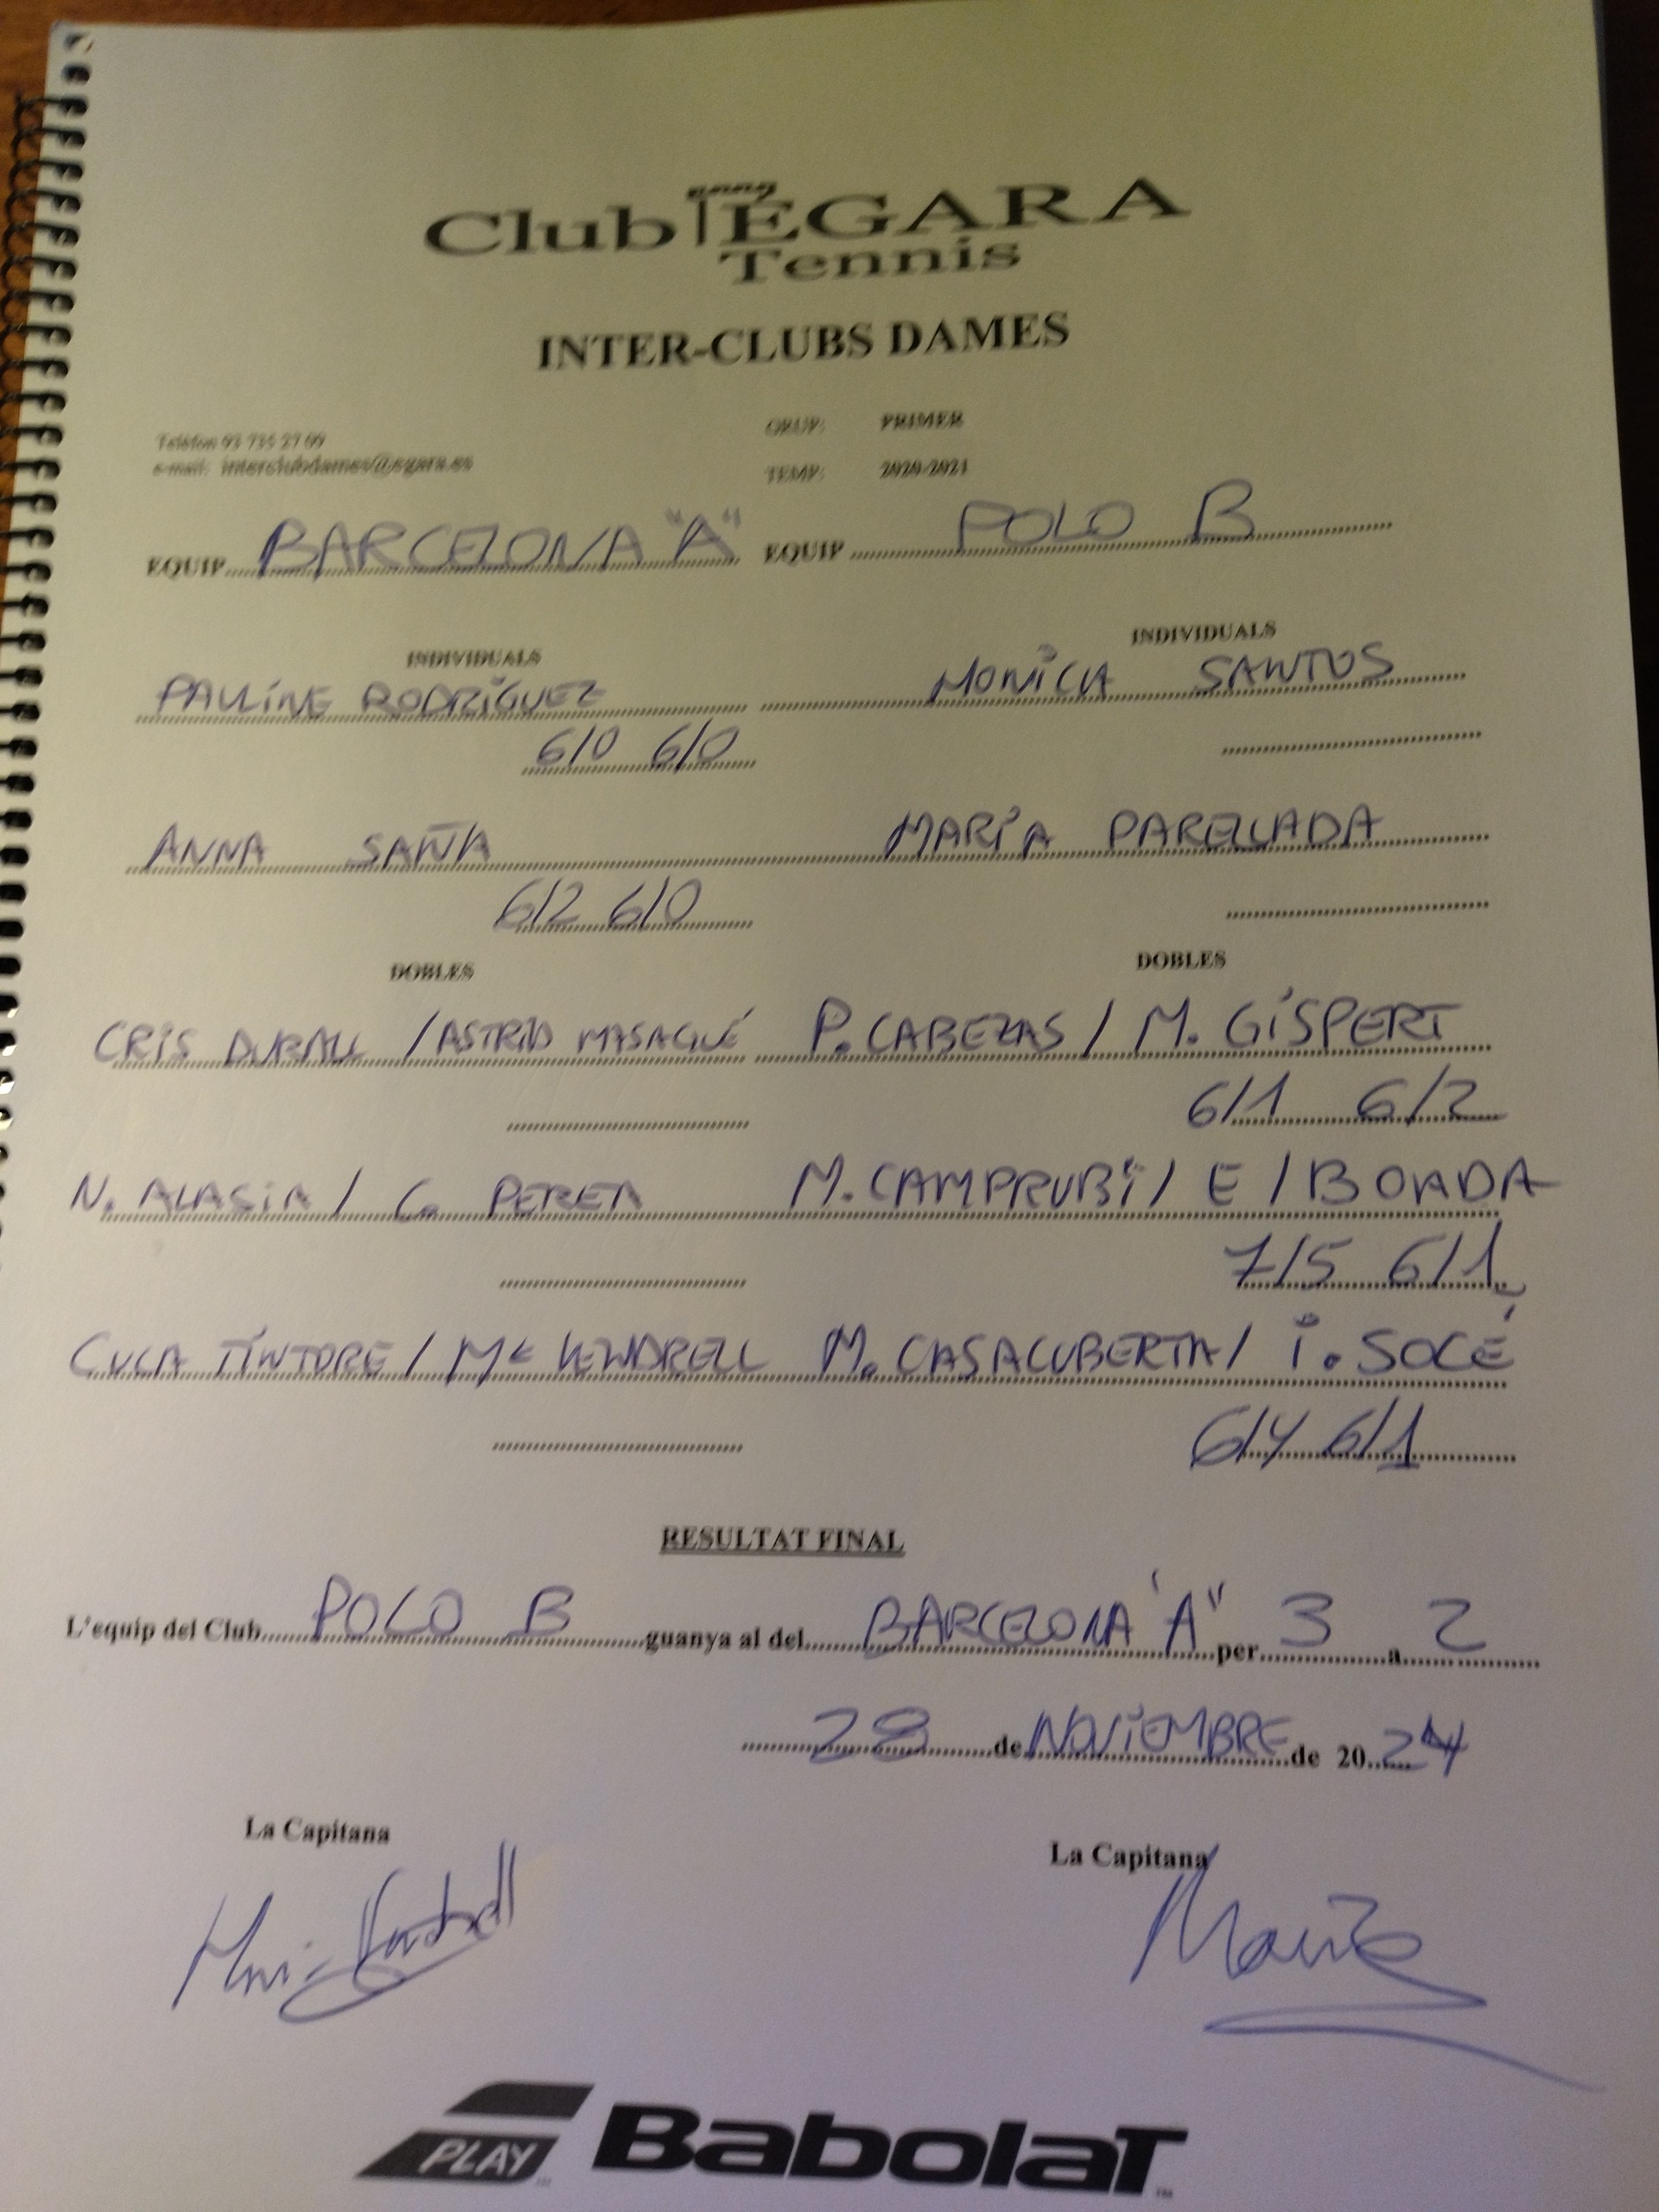 Club ÉGARA
Tennis
INTER-CLUBS DAMES
GRUP: PRIMER
Telèfon 93 735 27 09
e-mail: interclubdames@egara.es
TEMP: 2020-2021
EQUIP BARCELONA "A" EQUIP POLO B
INDIVIDUALS INDIVIDUALS
PAULINE RODRÍGUEZ MONICA SANTOS
6/0 6/0
ANNA SAÑA MARÍA PARELLADA
6/2 6/0
DOBLES DOBLES
CRIS DURALL / ASTRID MASAGUÉ P. CABEZAS / M. GISPERT
6/1 6/2
N. ALASIA / C. PERETA M. CAMPRUBÍ / E / BOADA
7/5 6/1
CUCA TINTORE / Mª VENDRELL M. CASACUBERTA / I. SOCÉ
6/4 6/1
RESULTAT FINAL
L'equip del Club POLO B guanya al del BARCELONA "A" per 3 a 2
28 de NOVIEMBRE de 2024
La Capitana La Capitana
PLAY BabolaT